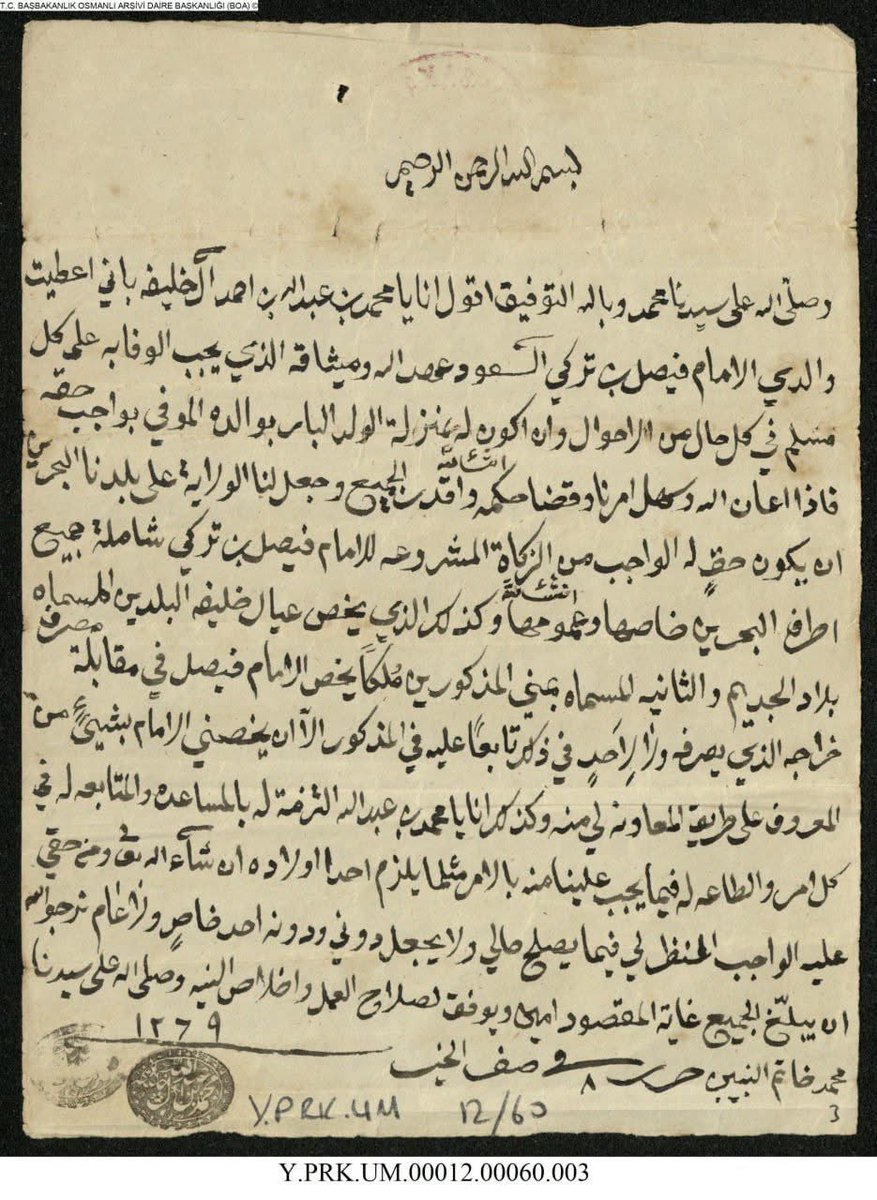 T.C. BAŞBAKANLIK OSMANLI ARŞİVİ DAİRE BAŞKANLIĞI (BOA) ©
بسم الله الرحمن الرحيم
وصلى الله على سيدنا محمد وبالله التوفيق اقول انا يا محمد بن عبدالله بن احمد آل خليفه باني اعطيت
والدي الامام فيصل بن تركي السعود عهد الله وميثاقه الذي يجب الوفا به على كل
مسلم في كل حال من الاحوال وان اكون له بمنزلة الولد البار بوالده الموفي بواجب حقه
فاذا اعان الله وسهل امرنا وقضا حكمه واقدت الجميع وجعل لنا الولاية على بلدنا البحرين
انشا الله
ان يكون حقٍ له الواجب من الزكاة المشروعه للامام فيصل بن تركي شاملة جميع
اطراف البحرين خاصها وعمومها وكذلك الذي يخص عيال خليفه البلدين المسماه
انشا الله
بلاد الجديم والثانيه المسماه بمني المذكورين مُلكاً يخص الامام فيصل في مقابلة مصرف
خراجه الذي يصرفه ولا لاِحَدٍ في ذلك تابعاً عليه في المذكور الآ ان يخصني الامام بشيئ من
المعروف على طريق المعاونه لي منه وكذلك انا يا محمد بن عبدالله الترفة له بالمساعده والمتابعه له في
كل امر والطاعه له فيما يجب علينا منه بالامر مثلما يلزم احدا اولاده ان شآء الله تعالى ومن حقي
عليه الواجب المنظر لي فيما يصلح حالي ولا يجعل دوني ودونه احد خاصٍ ولا عام نرجوا الله
ان يبلّغ الجميع غاية المقصود امين ويوفق لصلاح العمل واخلاص النيه وصلى الله على سيدنا
محمد خاتم النبيين حرر في ٨ صفر الخير ١٢٦٩
Y.PRK.UM 12/60
3
Y.PRK.UM.00012.00060.003